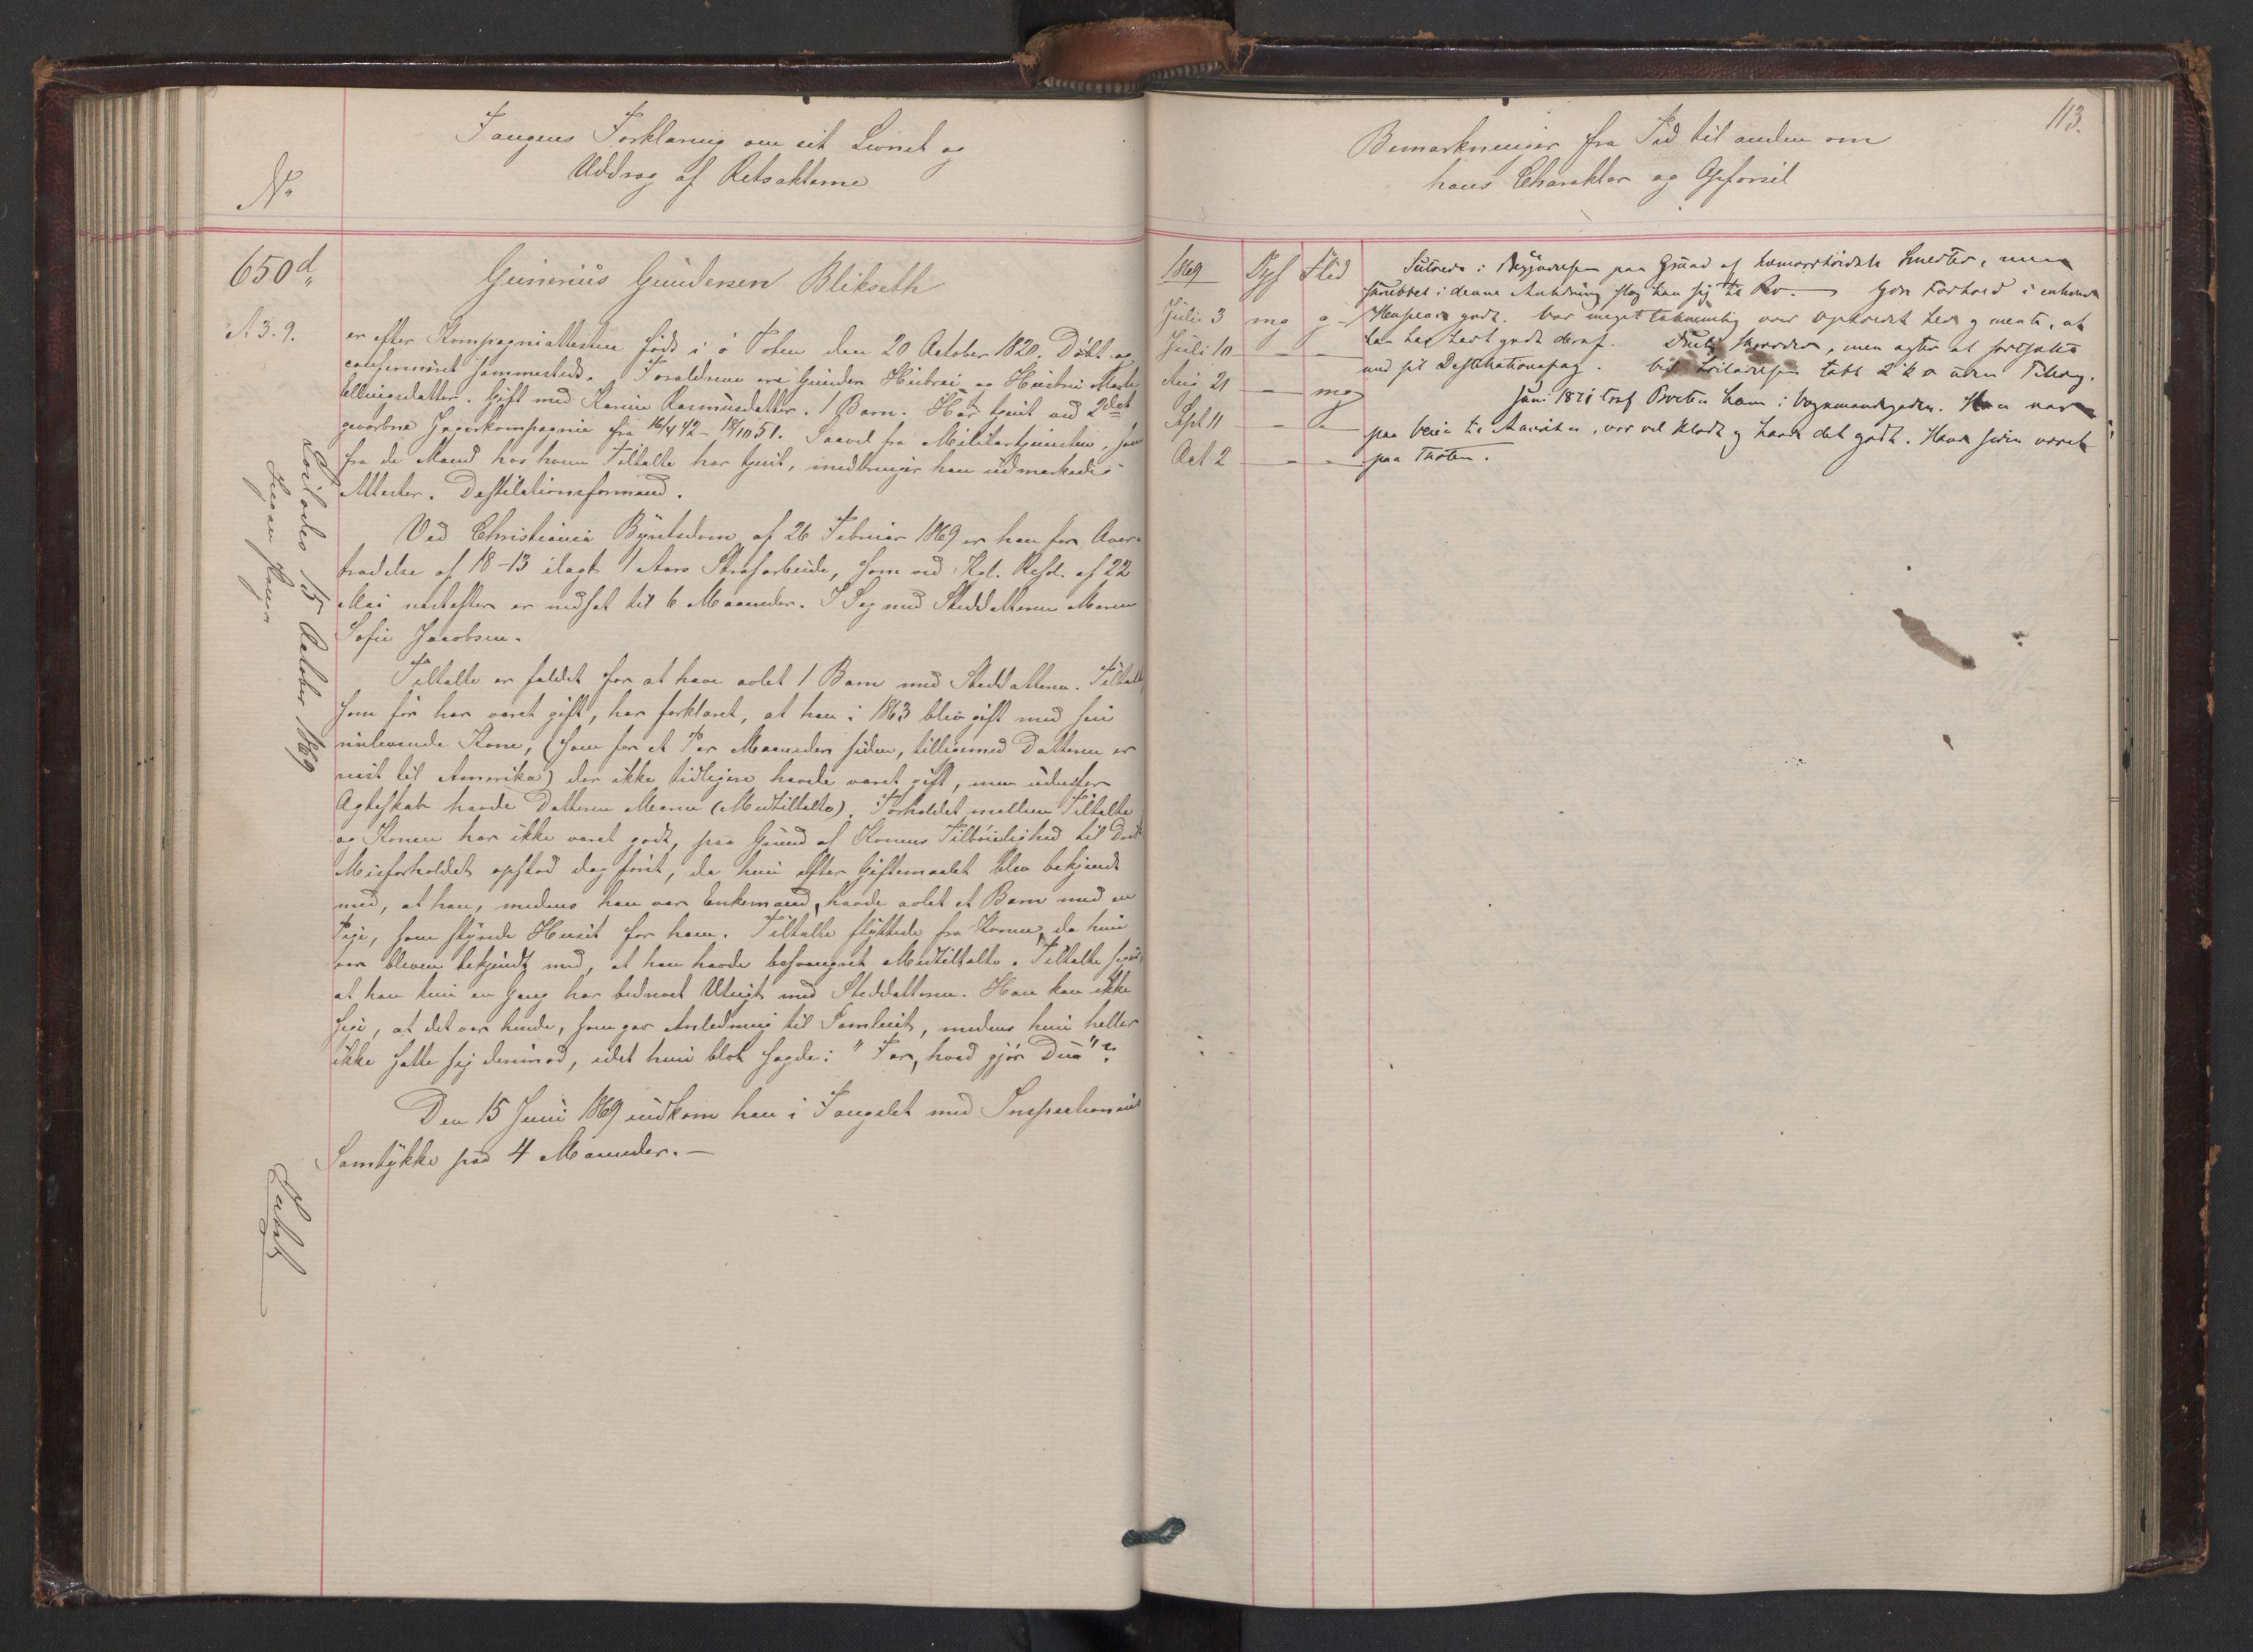 Fangens Forklaring om sit Livnet og
Uddrag af Retsakterne
No
650d
A 3. 9.
Gunerius Gundersen Blikseth
er efter Kompagniattesten født i ø Toten den 20 October 1820. Døbt og
confirmeret sammesteds. Forældrene ere Gunder Hustrui og Hustru Marte
Ellingsdatter. Gift med Karine Rasmusdatter. 1 Barn. Har tjent ved 2det
gevorbne Jægerkompagnie fra 16/4 42 - 18/10 51. Saavel fra Militærtjenesten, som
fra de Mænd hos hvem Tiltalte har tjent, medbringer han udmærkede
Attester. Destilationsformand.
Ved Christiania Byretsdom af 26 Februar 1869 er han for Over-
trædelse af 18-13 ilagt 1 Aars Strafarbeide, som ved Kgl. Resol. af 22
Mai næstefter er nedsat til 6 Maaneder. I Sag med Steddatteren Maren
Sofie Jacobsen.
Tiltalte er fældet for at have avlet 1 Barn med Steddatteren. Tiltalte,
som før har været gift, har forklaret, at han i 1863 blev gift med sin
nulevende Kone, (som for et Par Maaneder siden, tilligemed Datteren er
reist til Amerika) der ikke tidligere havde været gift, men udenfor
Ægteskab havde Datteren Maren (Medtiltalte). Forholdet mellem Tiltalte
og Konen har ikke været godt, paa Grund af Konens Tilbøielighed til Drik
Misforholdet opstod dog først, da hun efter Giftermaalet blev bekjendt
med, at han, medens han var Enkemand, havde avlet et Barn med en
Pige, som styrede Huset for ham. Tiltalte flyttede fra Konen, da hun
var bleven bekjendt med, at han havde besvangret Medtiltalte. Tiltalte siger,
at han kun en Gang har bedrevet Utugt med Steddatteren. Han kan ikke
sige, at det var hende, som gav Anledning til Samleiet, medens hun heller
ikke satte sig derimod, idet hun blot sagde: "Far, hvad gjør Du"?
Den 15 Juni 1869 indkom han i Fængslet med Inspectionens
Samtykke paa 4 Maaneder. —
Loslades 15 October 1869
113.
Bemærkninger fra Tid til anden om
hans Charakter og Opførsel
1869 Opf Flid
Juli 3 mg g
Juli 10 — —
Aug 21 — mg
Sept 11 — —
Oct 2 — —
i Begyndelsen paa Grund af hæmorrhoidale Smerter, men
i denne Anledning slog han sig til Ro. — God Forhold i enhver
Henseende godt. Var meget taknemlig over Opholdet her og mente, at
han har havt godt deraf. Dulig Skomager, men agter at fortsætte
med sit Destilationsfag. Ved Løsladelsen tabt 2 k o uden Tillæg.
Juni 1871 traf ham i Vognmandsgaden. Han var
paa Veien til Amerika, var vel klædt og havde det godt. Havde siden været
paa Thoten.